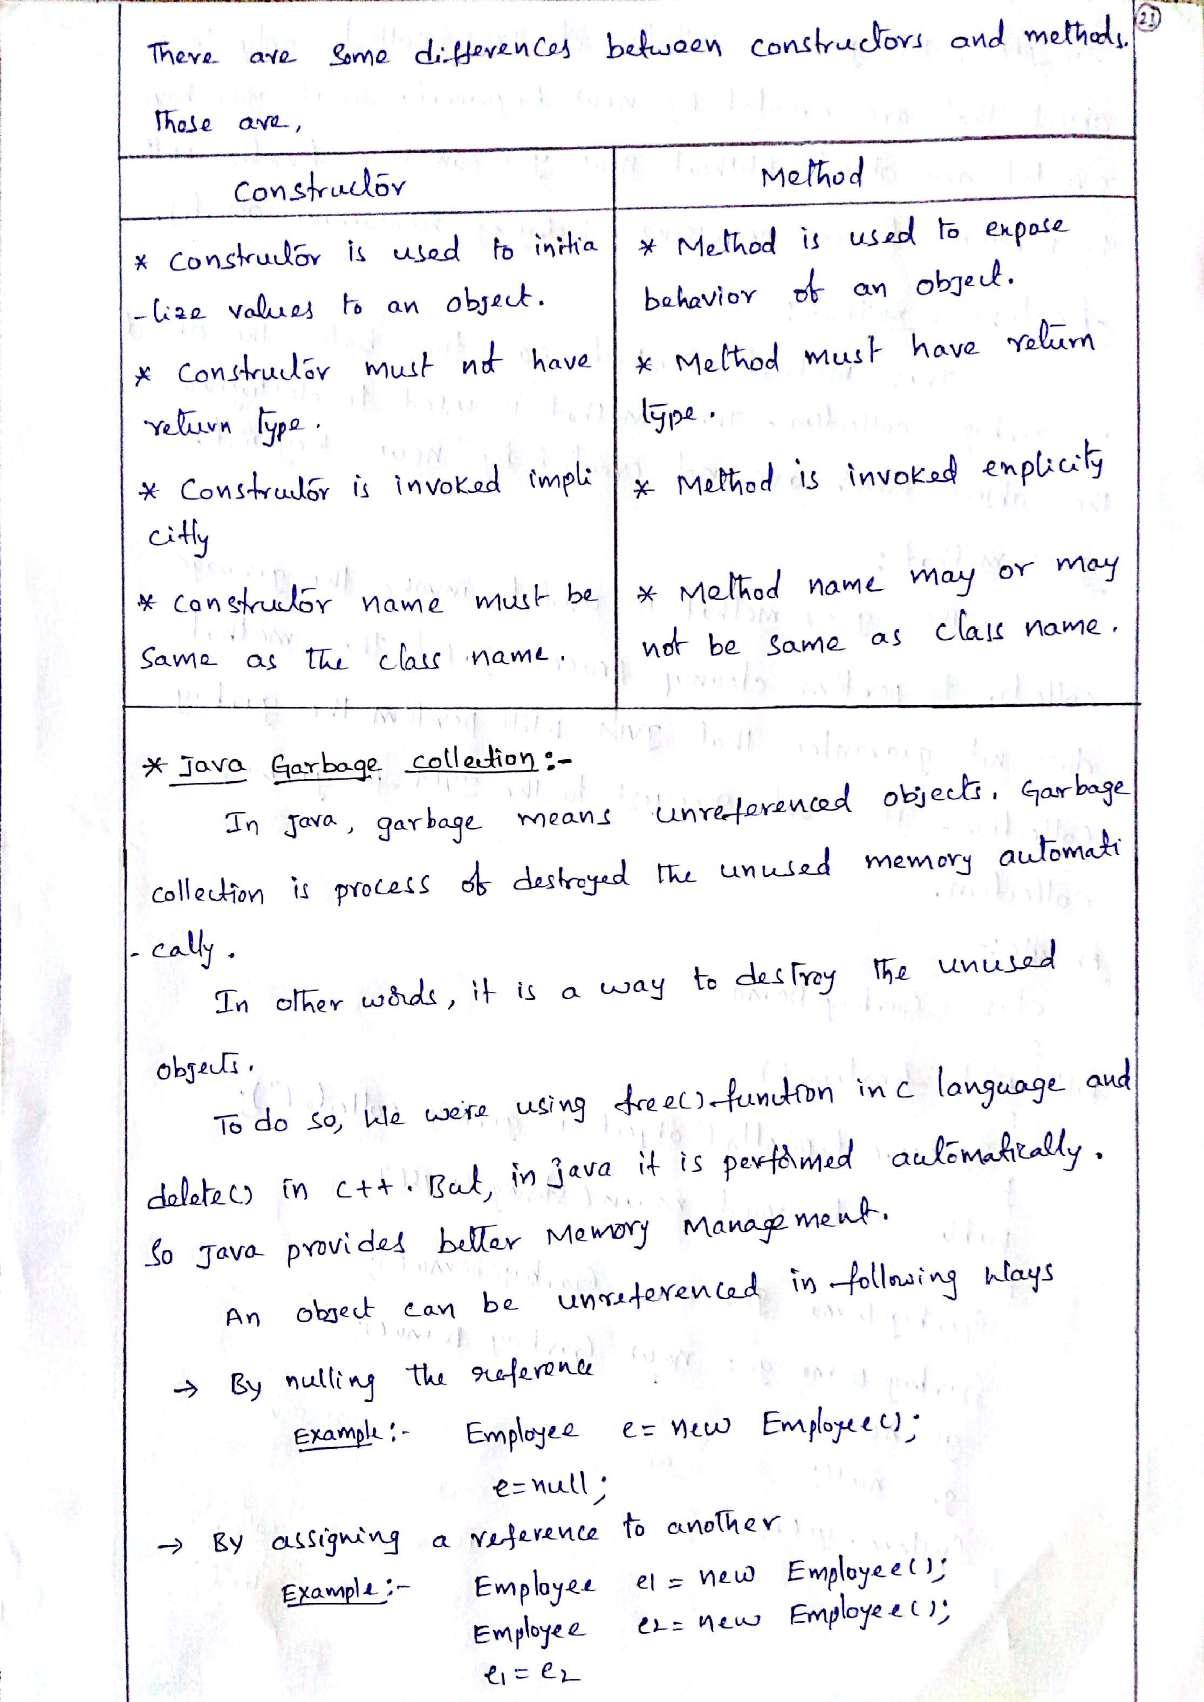 21
There are Some differences between constructors and methods.
Those are,
Constructor Method
* Constructor is used to initia
-lize values to an object.
* Constructor must not have
return type.
* Constructor is invoked impli
citly
* constructor name must be
Same as the class name.
* Method is used to expose
behavior of an object.
* Method must have return
type.
* Method is invoked explicity
* Method name may or may
not be same as class name.
* Java Garbage collection :-
In Java, garbage means unreferenced objects. Garbage
collection is process of destroyed the unused memory automati
- cally.
In other words, it is a way to destroy the unused
objects.
To do so, We were using free() function in c language and
delete() in c++. But, in java it is performed automatically.
So Java provides better Memory Management.
An object can be unreferenced in following Ways
→ By nulling the reference
Example :- Employee e = new Employee();
e=null;
→ By assigning a reference to another
Example :- Employee e1 = new Employee();
Employee e2 = new Employee();
e1 = e2